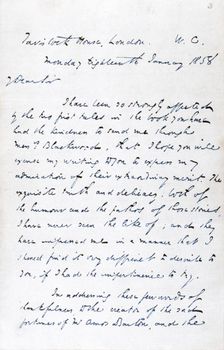 Tavistock House, London. W.C.
Monday Eighteenth January 1858
My Dear Sir
I have been so strongly affected
by the two first tales in the book you have
had the kindness to send me through
Messrs Blackwood, that I hope you will
excuse my writing to you to express my
admiration of their extraordinary merit. The
exquisite truth and delicacy, both of
the humour and the pathos of those stories,
I have never seen the like of; and they
have impressed me in a manner that I
should find it very difficult to describe to
you, if I had the impertinence to try.
In addressing these few words of
thankfulness, to the creator of the sad
fortunes of Mr Amos Barton, and the